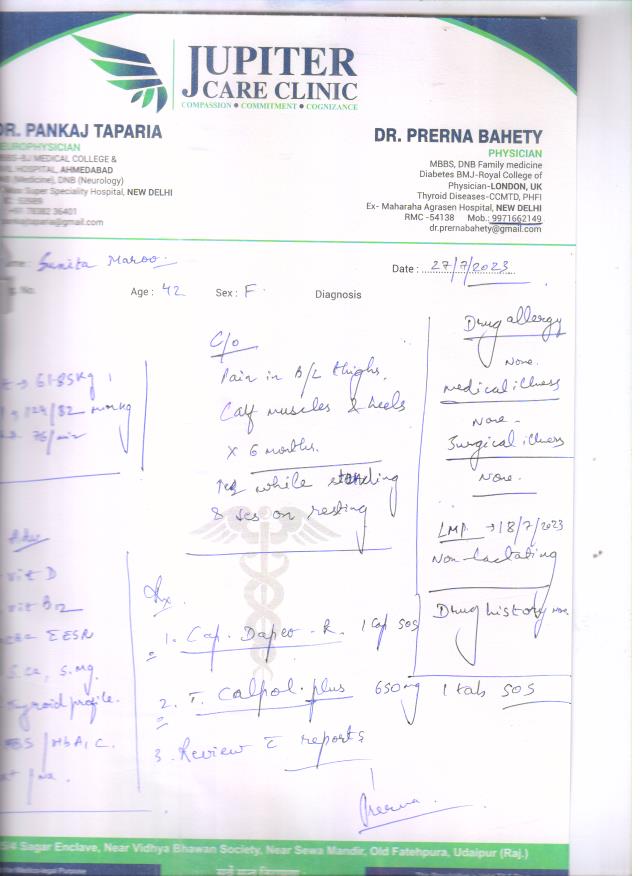 JUPITER
CARE CLINIC
COMPASSION • COMMITMENT • COGNIZANCE
DR. PANKAJ TAPARIA
NEUROPHYSICIAN
MBBS-BJ MEDICAL COLLEGE &
CIVIL HOSPITAL, AHMEDABAD
(Medicine), DNB (Neurology)
Max Super Speciality Hospital, NEW DELHI
+91 78382 36401
pankajtaparia@gmail.com
DR. PRERNA BAHETY
PHYSICIAN
MBBS, DNB Family medicine
Diabetes BMJ-Royal College of
Physician-LONDON, UK
Thyroid Diseases-CCMTD, PHFI
Ex- Maharaha Agrasen Hospital, NEW DELHI
RMC -54138 Mob.: 9971662149
dr.prernabahety@gmail.com
Sunita Maroo
Date : 27/7/2023
Age : 42 Sex : F Diagnosis
61.85kg
124/82 mmHg
76/min
C/o
Pain in B/L thighs,
Calf muscles & heels
x 6 months.
while standing
on resting
Drug allergy
None.
Medical illness
None.
Surgical illness
None.
LMP → 18/7/2023
Non-lactating
Drug history None
Adv
vit D
vit B12
ESR
S. ca, S. mg.
Thyroid profile.
HbA1C.
Rx
1. Cap. Dapco-R. 1 Cap SOS
2. T. Calpol-plus 650mg 1 tab SOS
3. Review c̄ reports
Prerna
5/4 Sagar Enclave, Near Vidhya Bhawan Society, Near Sewa Mandir, Old Fatehpura, Udaipur (Raj.)